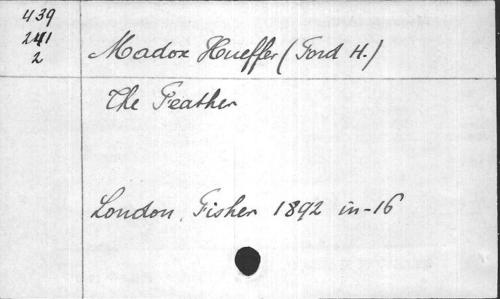 439
241
2
Madox Hueffer (Ford H.)
The Feather
London, Fisher 1892 in-16